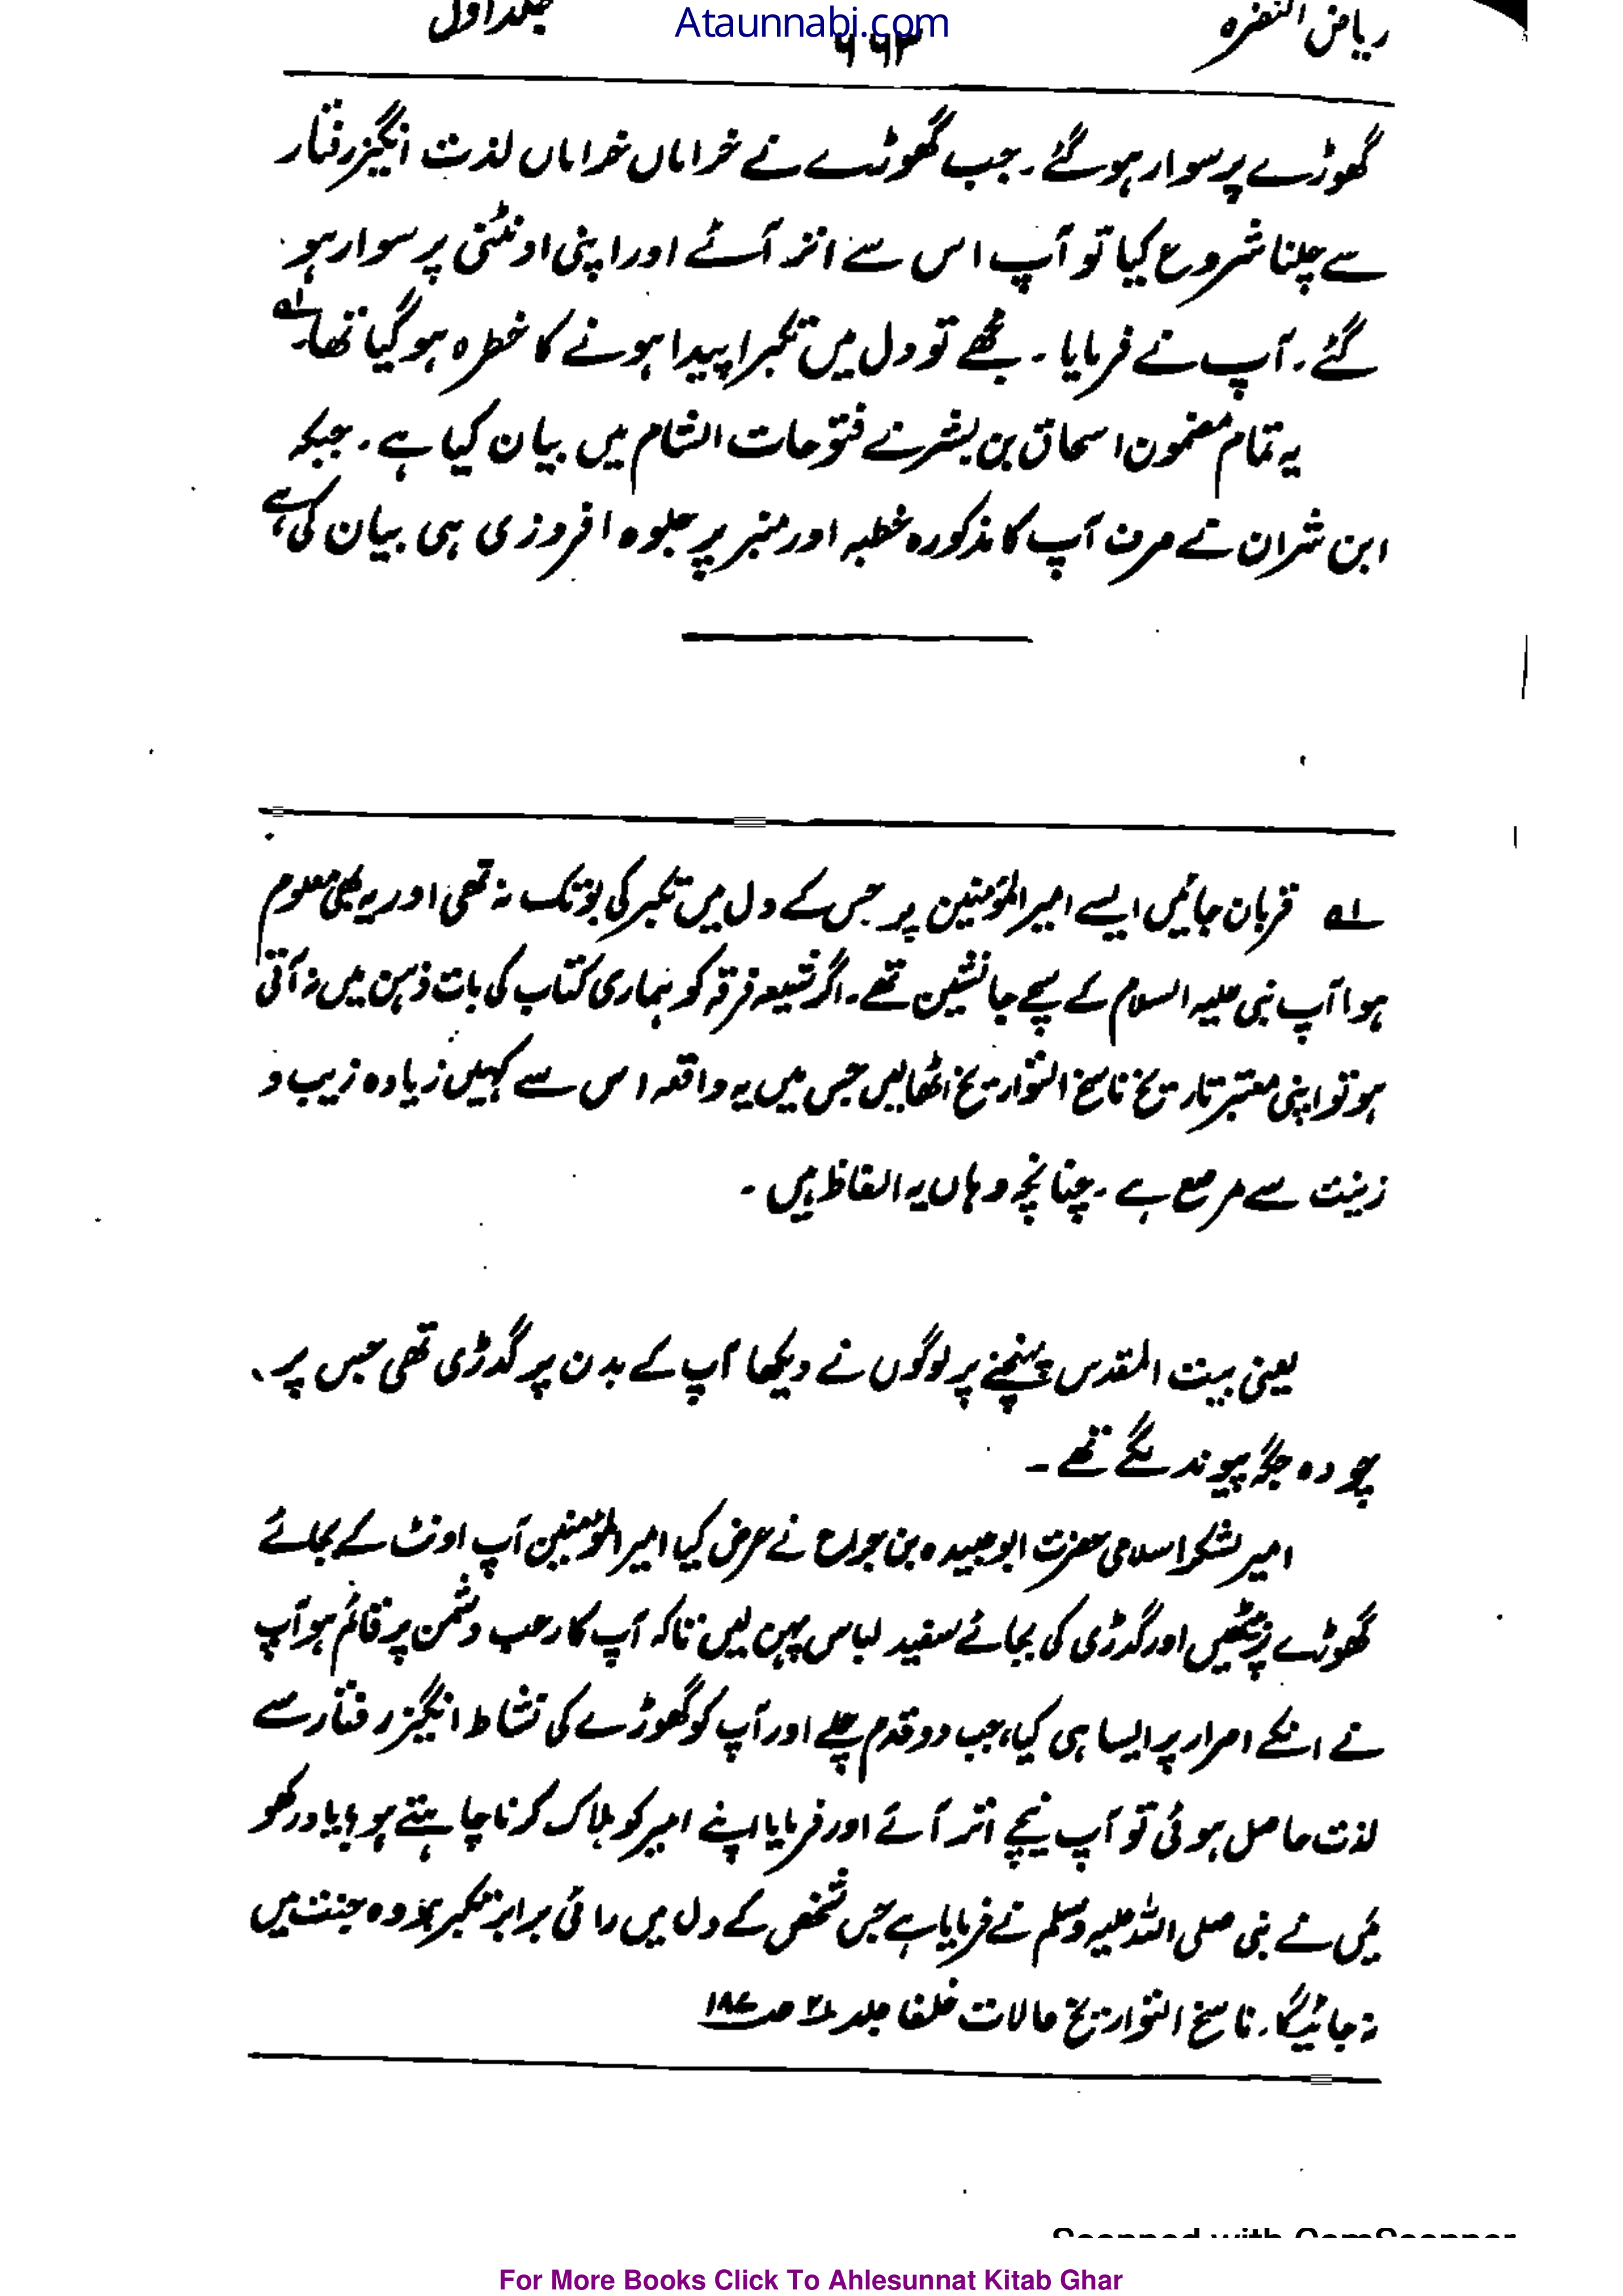 ریاض النضرہ ۶۶۳ جلد اول
Ataunnabi.com
گھوڑے پر سوار ہو گئے۔ جب گھوڑے نے خراماں خراماں لذت انگیز رفتار
سے چلنا شروع کیا تو آپ اس سے اتر آئے اور اپنی اونٹنی پر سوار ہو
گئے۔ آپ نے فرمایا۔ مجھے تو دل میں تکبر پیدا ہونے کا خطرہ ہو گیا تھا۔ لہ
یہ تمام مضمون اسحاق بن بشر نے فتوحات الشام میں بیان کیا ہے۔ جبکہ
ابن شران نے صرف آپ کا مذکورہ خطبہ اور منبر پر جلوہ افروزی ہی بیان کی ہے
لہ قربان جائیں ایسے امیر المؤمنین پر جس کے دل میں تکبر کی بو تک نہ تھی اور یہ بھی معلوم
ہوا آپ نبی علیہ السلام کے سچے جانشین تھے۔ اگر شیعہ فرقہ کو ہماری کتاب کی بات ذہن میں نہ آتی
ہو تو اپنی معتبر تاریخ ناسخ التواریخ اٹھا لیں جس میں یہ واقعہ اس سے کہیں زیادہ زیب و
زینت سے مرصع ہے۔ چنانچہ وہاں یہ الفاظ ہیں۔
یعنی بیت المقدس پہنچنے پر لوگوں نے دیکھا آپ کے بدن پر گدڑی تھی جس پر
چودہ جگہ پیوند لگے تھے۔
امیر لشکر اسلامی حضرت ابوعبیدہ بن جراح نے عرض کیا امیر المؤمنین آپ اونٹ کے بجائے
گھوڑے پر بیٹھیں اور گدڑی کی بجائے سفید لباس پہن لیں تاکہ آپ کا رعب دشمن پر قائم ہو آپ
نے انکے اصرار پر ایسا ہی کیا، جب دو قدم چلے اور آپ کو گھوڑے کی نشاط انگیز رفتار سے
لذت حاصل ہوئی تو آپ نیچے اتر آئے اور فرمایا اپنے امیر کو ہلاک کرنا چاہتے ہو؟ یاد رکھو
میں نے نبی صلی اللہ علیہ وسلم نے فرمایا ہے جس شخص کے دل میں رائی برابر تکبر ہو وہ جنت میں
نہ جائیگا۔ ناسخ التواریخ حالات خلفا جلد ۲ ص ۱۸۷
Scanned with CamScanner
For More Books Click To Ahlesunnat Kitab Ghar